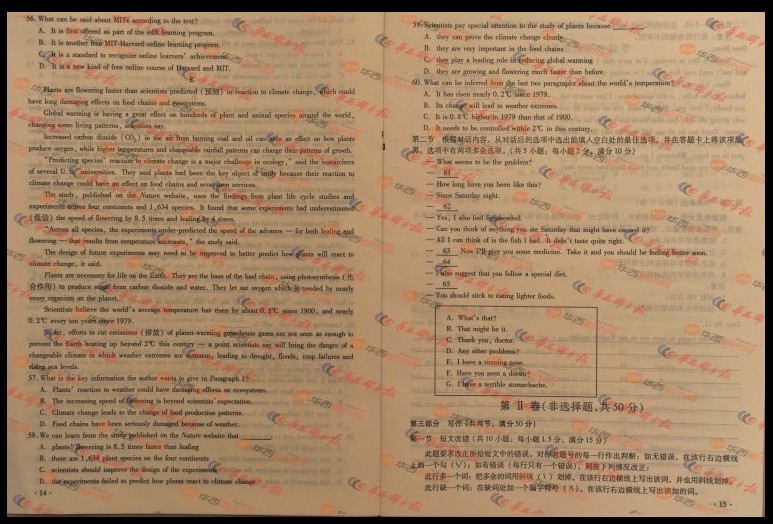 56. What can be said about MITx according to the text?
A. It is first offered as part of the edX learning program.
B. It is another free MIT-Harvard online learning program.
C. It is a standard to recognize online learners' achievement.
D. It is a new kind of free online course of Harvard and MIT.
E
Plants are flowering faster than scientists predicted (预测) in reaction to climate change, which could
have long damaging effects on food chains and ecosystems.
Global warming is having a great effect on hundreds of plant and animal species around the world,
changing some living patterns, scientists say.
Increased carbon dioxide (CO₂) in the air from burning coal and oil can have an effect on how plants
produce oxygen, while higher temperatures and changeable rainfall patterns can change their patterns of growth.
"Predicting species' reaction to climate change is a major challenge in ecology," said the researchers
of several U.S. universities. They said plants had been the key object of study because their reaction to
climate change could have an effect on food chains and ecosystem services.
The study, published on the Nature website, uses the findings from plant life cycle studies and
experiments across four continents and 1,634 species. It found that some experiments had underestimated
(低估) the speed of flowering by 8.5 times and leafing by 4 times.
"Across all species, the experiments under-predicted the speed of the advance — for both leafing and
flowering — that results from temperature increases," the study said.
The design of future experiments may need to be improved to better predict how plants will react to
climate change, it said.
Plants are necessary for life on the Earth. They are the base of the food chain, using photosynthesis (光
合作用) to produce sugar from carbon dioxide and water. They let out oxygen which is needed by nearly
every organism on the planet.
Scientists believe the world's average temperature has risen by about 0.8℃ since 1900, and nearly
0.2℃ every ten years since 1979.
So far, efforts to cut emissions (排放) of planet-warming greenhouse gases are not seen as enough to
prevent the Earth heating up beyond 2℃ this century — a point scientists say will bring the danger of a
changeable climate in which weather extremes are common, leading to drought, floods, crop failures and
rising sea levels.
57. What is the key information the author wants to give in Paragraph 1?
A. Plants' reaction to weather could have damaging effects on ecosystems.
B. The increasing speed of flowering is beyond scientists' expectation.
C. Climate change leads to the change of food production patterns.
D. Food chains have been seriously damaged because of weather.
58. We can learn from the study published on the Nature website that
A. plants' flowering is 8.5 times faster than leafing
B. there are 1,634 plant species on the four continents
C. scientists should improve the design of the experiments
D. the experiments failed to predict how plants react to climate change
· 14 ·
59. Scientists pay special attention to the study of plants because
A. they can prove the climate change clearly
B. they are very important in the food chains
C. they play a leading role in reducing global warming
D. they are growing and flowering much faster than before
60. What can be inferred from the last two paragraphs about the world's temperature?
A. It has risen nearly 0.2℃ since 1979.
B. Its change will lead to weather extremes.
C. It is 0.8℃ higher in 1979 than that of 1900.
D. It needs to be controlled within 2℃ in this century.
第二节 根据对话内容，从对话后的选项中选出能填入空白处的最佳选项，并在答题卡上将该项涂
黑。选项中有两项多余选项。(共5小题；每小题2分，满分10分)
— What seems to be the problem?
— 61
— How long have you been like this?
— Since Saturday night.
— 62
— Yes, I also feel lightheaded.
— Can you think of anything you ate Saturday that might have caused it?
— All I can think of is the fish I had. It didn't taste quite right.
— 63 Now I'll give you some medicine. Take it and you should be feeling better soon.
— 64
— I also suggest that you follow a special diet.
— 65
— You should stick to eating lighter foods.
A. What's that?
B. That might be it.
C. Thank you, doctor.
D. Any other problems?
E. I have a running nose.
F. Have you seen a doctor?
G. I have a terrible stomachache.
第 Ⅱ 卷(非选择题,共50分)
第三部分 写作(共两节，满分50分)
第一节 短文改错(共10小题；每小题1.5分，满分15分)
此题要求改正所给短文中的错误。对标有题号的每一行作出判断：如无错误，在该行右边横线
上画一个勾(√)；如有错误(每行只有一个错误)，则按下列情况改正：
此行多一个词：把多余的词用斜线(\)划掉，在该行右边横线上写出该词，并也用斜线划掉。
此行缺一个词：在缺词处加一个漏字符号(∧)，在该行右边横线上写出该加的词。
· 15 ·